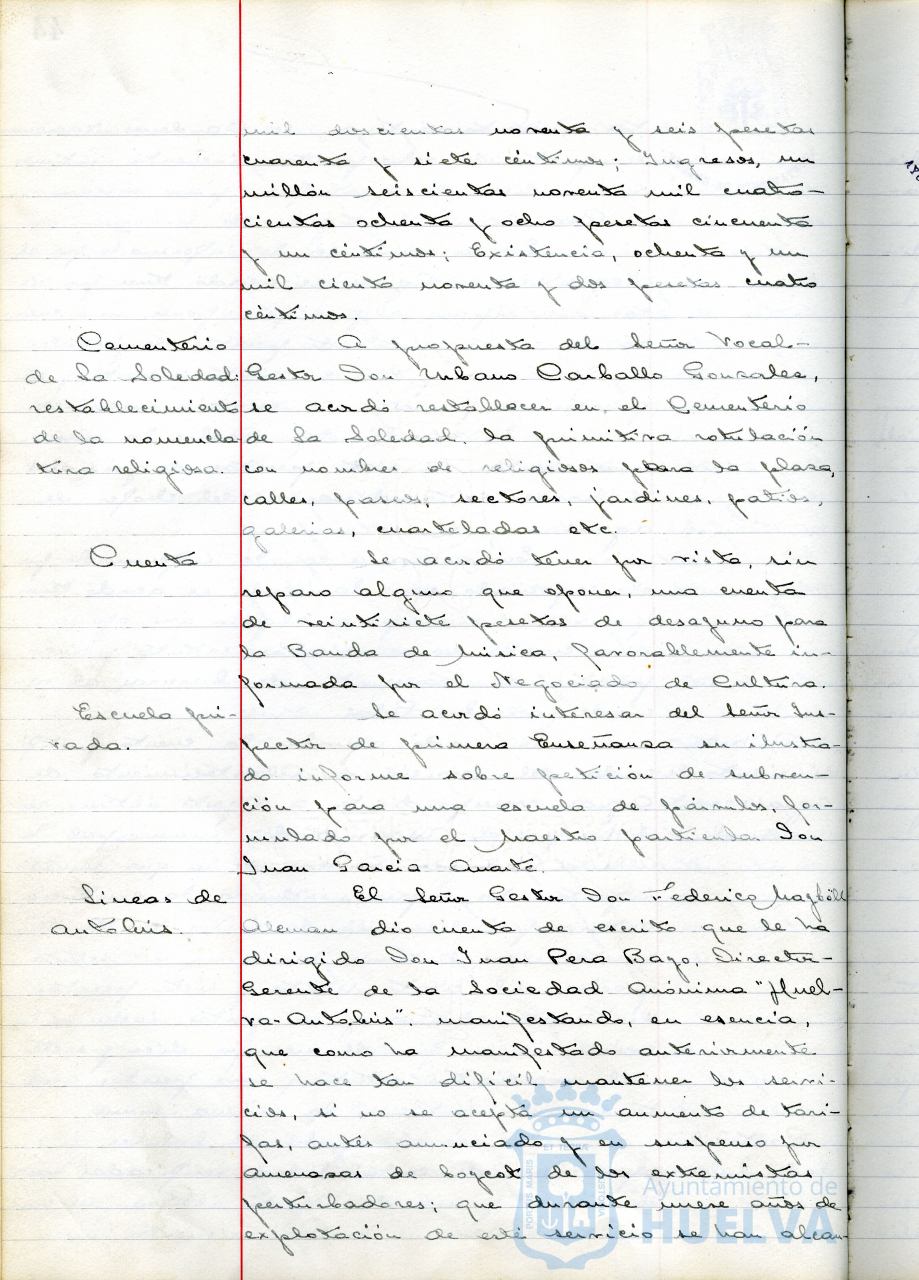 mil doscientas noventa y seis pesetas
cuarenta y siete céntimos; Ingresos, un
millón seiscientas noventa mil cuatro-
cientas ochenta y ocho pesetas cincuenta
y un céntimos; Existencia, ochenta y un
mil ciento noventa y dos pesetas cuatro
céntimos.
Cementerio
de La Soledad:
restablecimiento
de la nomencla
tura religiosa.
A propuesta del Señor Vocal-
Gestor Don Urbano Carballo Gonzales,
se acordó restablecer en el Cementerio
de La Soledad, la primitiva rotulación
con nombres de religiosos para la plaza,
calles, paseos, sectores, jardines, patios,
galerias, cuarteladas etc.
Cuenta
Se acordó tener por vista, sin
reparo alguno que oponer, una cuenta
de veintisiete pesetas de desayuno para
la Banda de Música, favorablemente in-
formada por el Negociado de Cultura.
Escuela pri-
vada.
Se acordó interesar del Señor Ins-
pector de primera Enseñanza su ilustra-
do informe sobre petición de subven-
ción para una escuela de párvulos, for-
mulado por el Maestro particular Don
Juan Garcia Duarte.
Lineas de
autobús.
El Señor Gestor Don Federico
Aleman dio cuenta de escrito que le ha
dirigido Don Juan Pera Bayo, Director-
Gerente de la Sociedad Anónima "Huel-
va-Autobús", manifestando, en esencia,
que como ha manifestado anteriormente
se hace tan difícil mantener los servi-
cios, si no se acepta un aumento de tari-
fas, antes anunciado y en suspenso por
amenazas de boycot de los extremistas
perturbadores; que durante nueve años de
explotación de este servicio se han alcan-
Ayuntamiento de
HUELVA